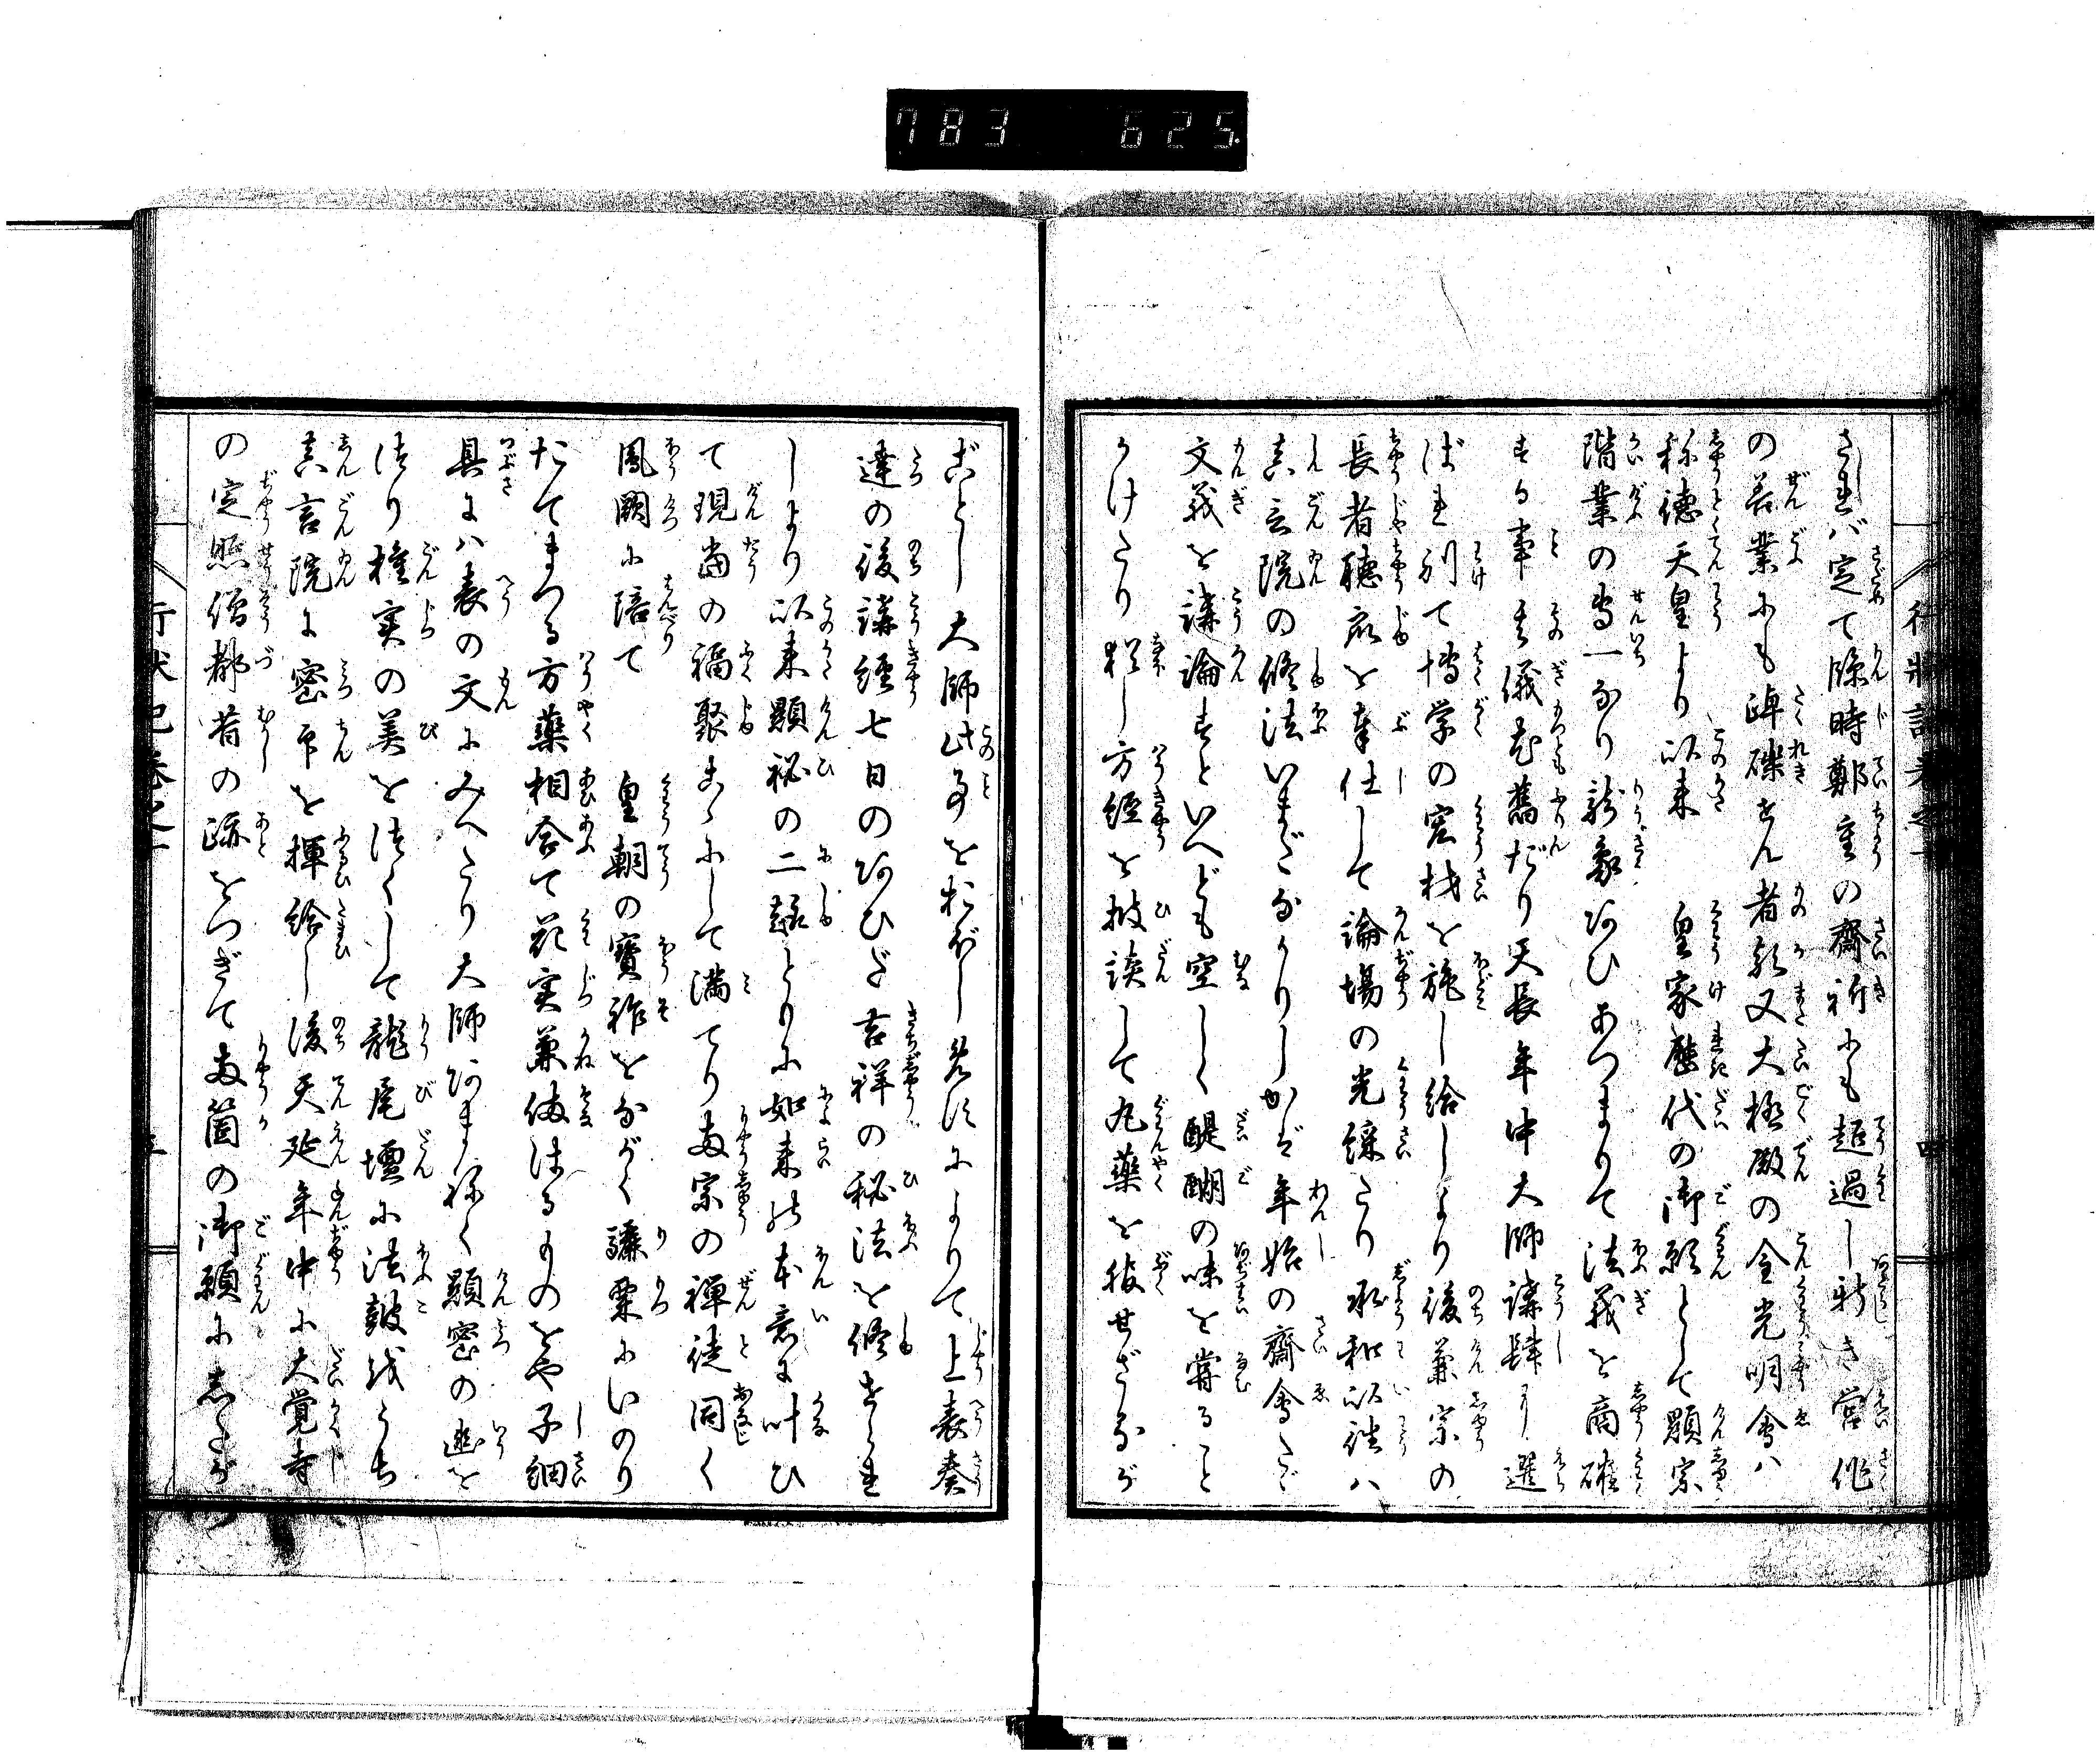 783 625
されバ定て隙時鄭重の齋祈にも超過し新き営作
の善業にも踔礫せん者歟又大極殿の金光明會ハ
称徳天皇より以来 皇家歴代の御願として顕宗
階業の専一なり龍象あひあつまりて法義を商確
する事其儀尤舊だり天長年中大師講肆に選
ばれ別て博学の宏材を施し給しより後兼宗の
長者聴衆を奉仕して論場の光彩たり承和以往ハ
真言院の修法いまだなかりしかば年始の齋會たゞ
文義を講論すといへども空しく醍醐の味を甞ること
かけたり猶し方經を披談して丸薬を服せざるが
ごとし大師此事をおぼし食により て上表奏
達の後講經七日のあひだ吉祥の秘法を修せられ
しより以来顕秘の二趣ともに如来の本意に叶ひ
て現當の福聚こゝにして満てり両宗の禅徒同く
鳳闕に陪て 皇朝の寶祚をながく驪栗にいのり
たてまつる方藥相合て花実兼備はるものをや子細
具にハ表の文にみへたり大師あまねく顕密の迹を
ほり権実の美をほくして龍尾壇に法皷をうち
真言院に密印を揮給し後天延年中に大覚寺
の定照僧都昔の跡をつぎて両箇の御願にしたが
行状記巻之
四